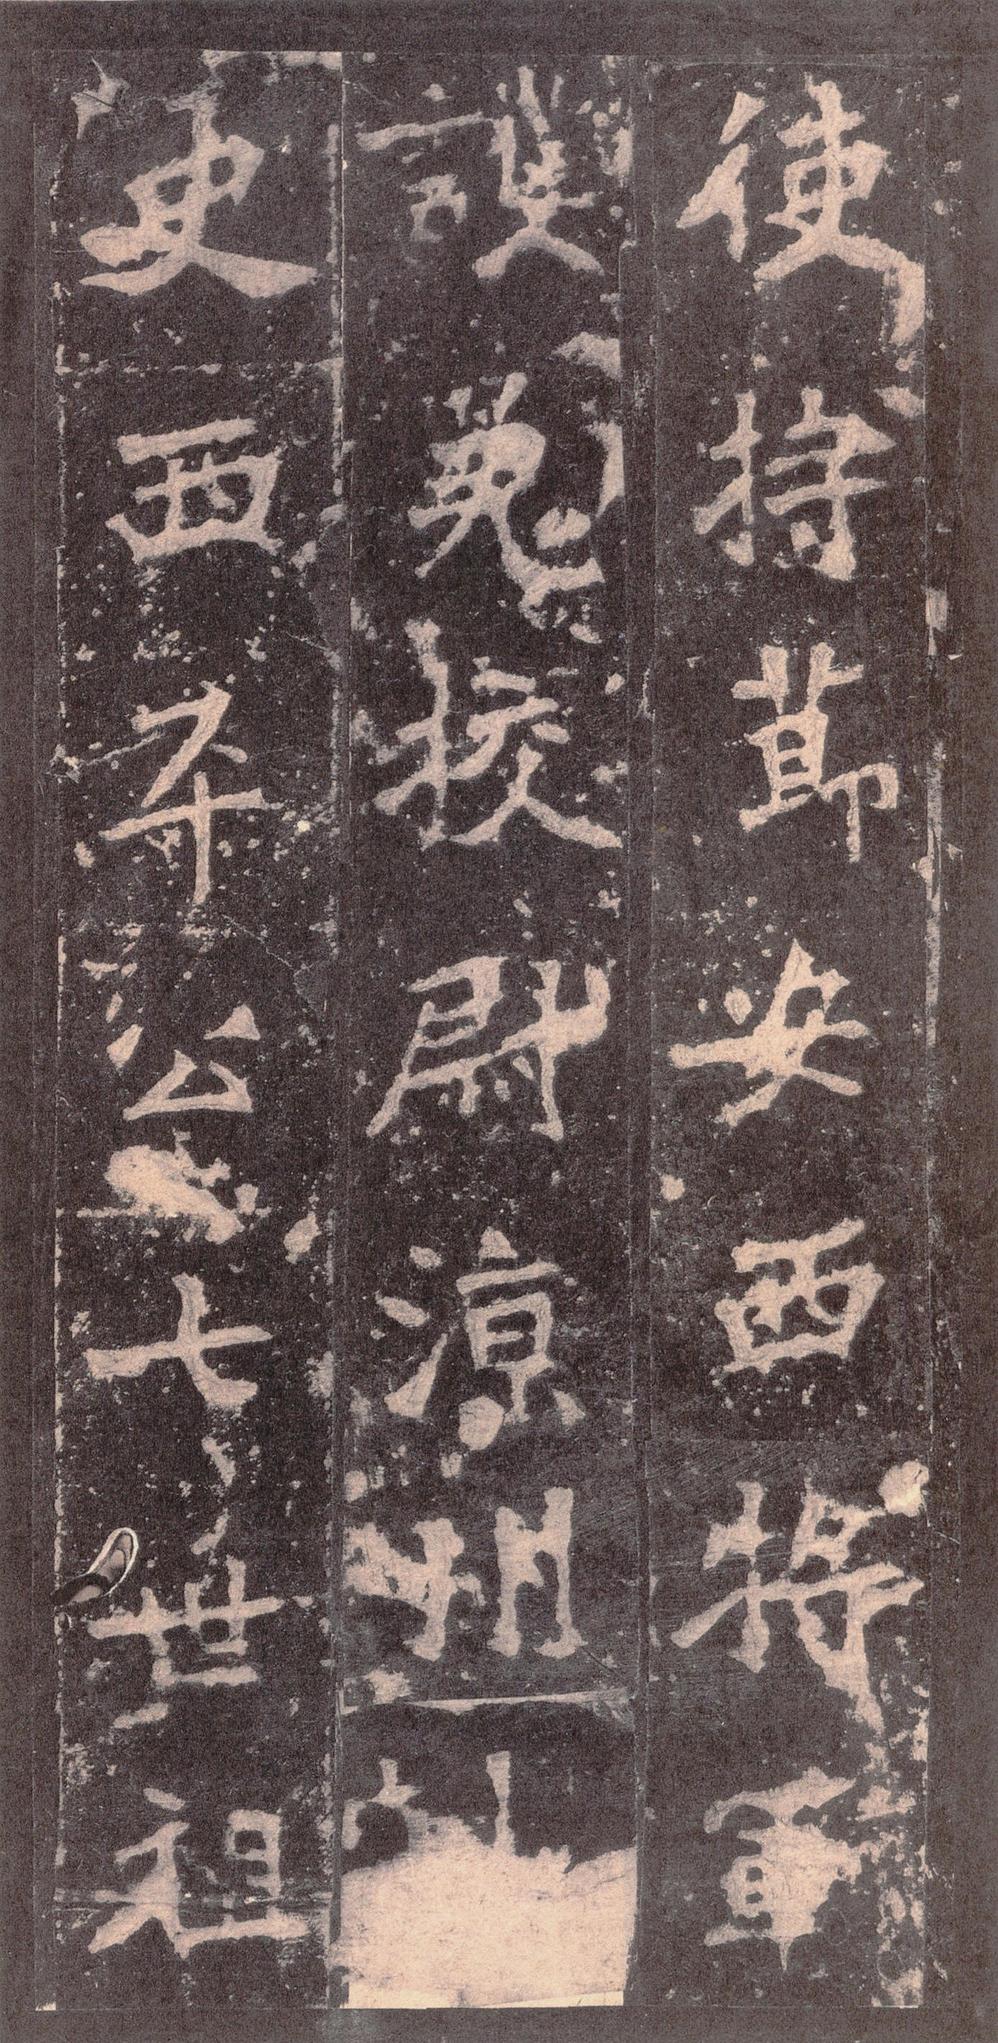 使持節安西將軍
護羌校尉涼州
史西平公七世祖